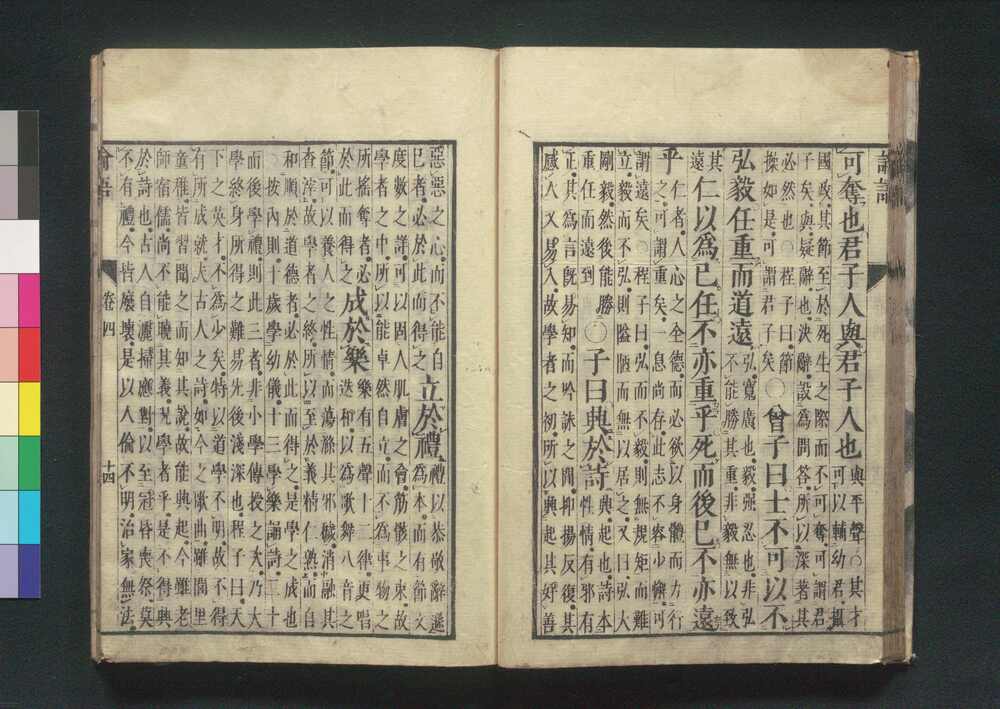 論語
可奪也君子人與君子人也與平聲○其才
可以輔幼君攝
國政其節至於死生之際而不可奪可謂君
子矣與疑辭也決辭設為問答所以深著其
必然也○程子曰節
操如是可謂君子矣○曾子曰士不可以不
弘毅任重而道遠弘寬廣也毅强忍也非弘
不能勝其重非毅無以致
其
遠仁以為己任不亦重乎死而後已不亦遠
乎仁者人心之全德而必欲以身體而力行
之可謂重矣一息尚存此志不容少懈可
謂遠矣○程子曰弘而不毅則無規矩而難
立毅而不弘則隘陋而無以居之又曰弘大
剛毅然後能勝
重任而遠到○子曰興於詩興起也詩本
性情有邪有
正其為言既易知而吟詠之間抑揚反復其
感人又易入故學者之初所以興起其好善
惡惡之心而不能自
已者必於此而得之立於禮禮以恭敬辭遜
為本而有節文
度數之詳可以固人肌膚之會筋骸之束故
學者之中所以能卓然自立而不為事物之
所搖奪者必
於此而得之成於樂樂有五聲十二律更唱
迭和以為歌舞八音之
節可以養人之性情而蕩滌其邪穢消融其
查滓故學者之終所以至於義精仁熟而自
和順於道德者必於此而得之是學之成也
○按內則十歲學幼儀十三學樂誦詩二十
而後學禮則此三者非小學傳授之次乃大
學終身所得之難易先後淺深也程子曰天
下之英才不為少矣特以道學不明故不得
有所成就夫古人之詩如今之歌曲雖閭里
童稚皆習聞之而知其說故能興起今雖老
師宿儒尚不能曉其義況學者乎是不得興
於詩也古人自灑掃應對以至冠昏喪祭莫
不有禮今皆廢壞是以人倫不明治家無法
論語 卷四 十四